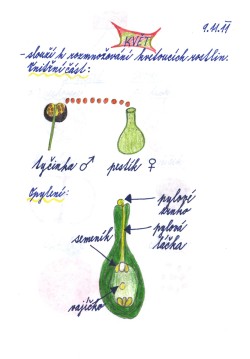 9.11.11
KVĚT
- slouží k rozmnožování kvetoucích rostlin.
Vnitřní část:
tyčinka ♂ pestík ♀
Opylení:
pylové
zrno
pylová
láčka
semeník
vajíčko